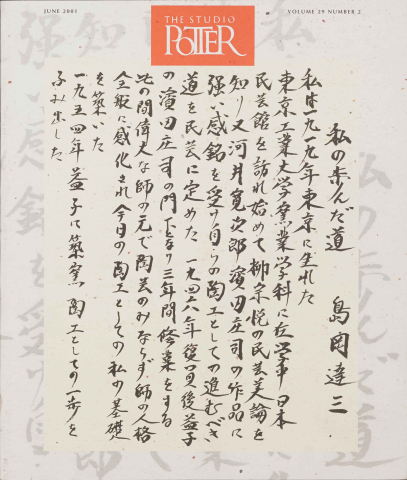 JUNE 2001
THE STUDIO
POTTER
VOLUME 29 NUMBER 2
私の歩んだ道
島岡達三
私は一九一九年東京に生れた
東京工業大学窯業学科に在学中日本
民芸館を訪れ始めて柳宗悦の民芸美論を
知り又河井寛次郎濱田庄司の作品に
強い感銘を受け自らの陶工としての進むべき
道を民芸に定めた 一九四六年復員後益子
の濱田庄司の門下となり三年間修業をする
此の間偉大な師の元で陶芸のみならず師の人格
全般に感化され今日の陶工としての私の基礎
を築いた
一九五四年益子に築窯 陶工としての一歩を
ふみ出した